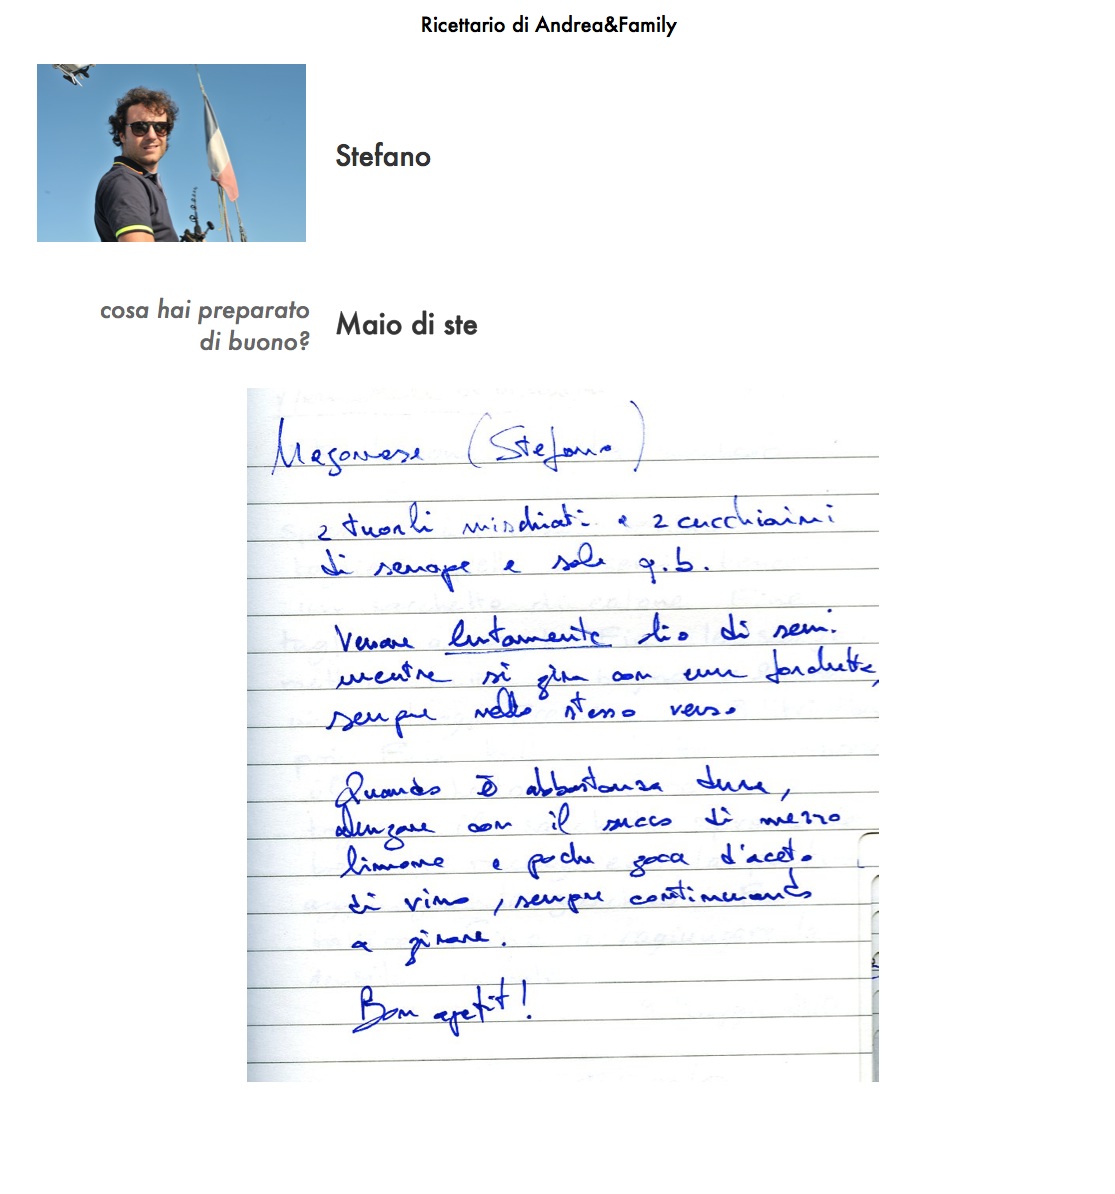 Ricettario di Andrea&Family
Stefano
cosa hai preparato
di buono?
Maio di ste
Magonese (Stefano)
2 tuorli mischiati e 2 cucchiaini
di senape e sale q.b.
Versare lentamente olio di semi
mentre si gira con una forchetta,
sempre nello stesso verso
Quando è abbastanza dura,
allungare con il succo di mezzo
limone e poche gocce d'aceto
di vino, sempre continuando
a girare.
Bon apetit!